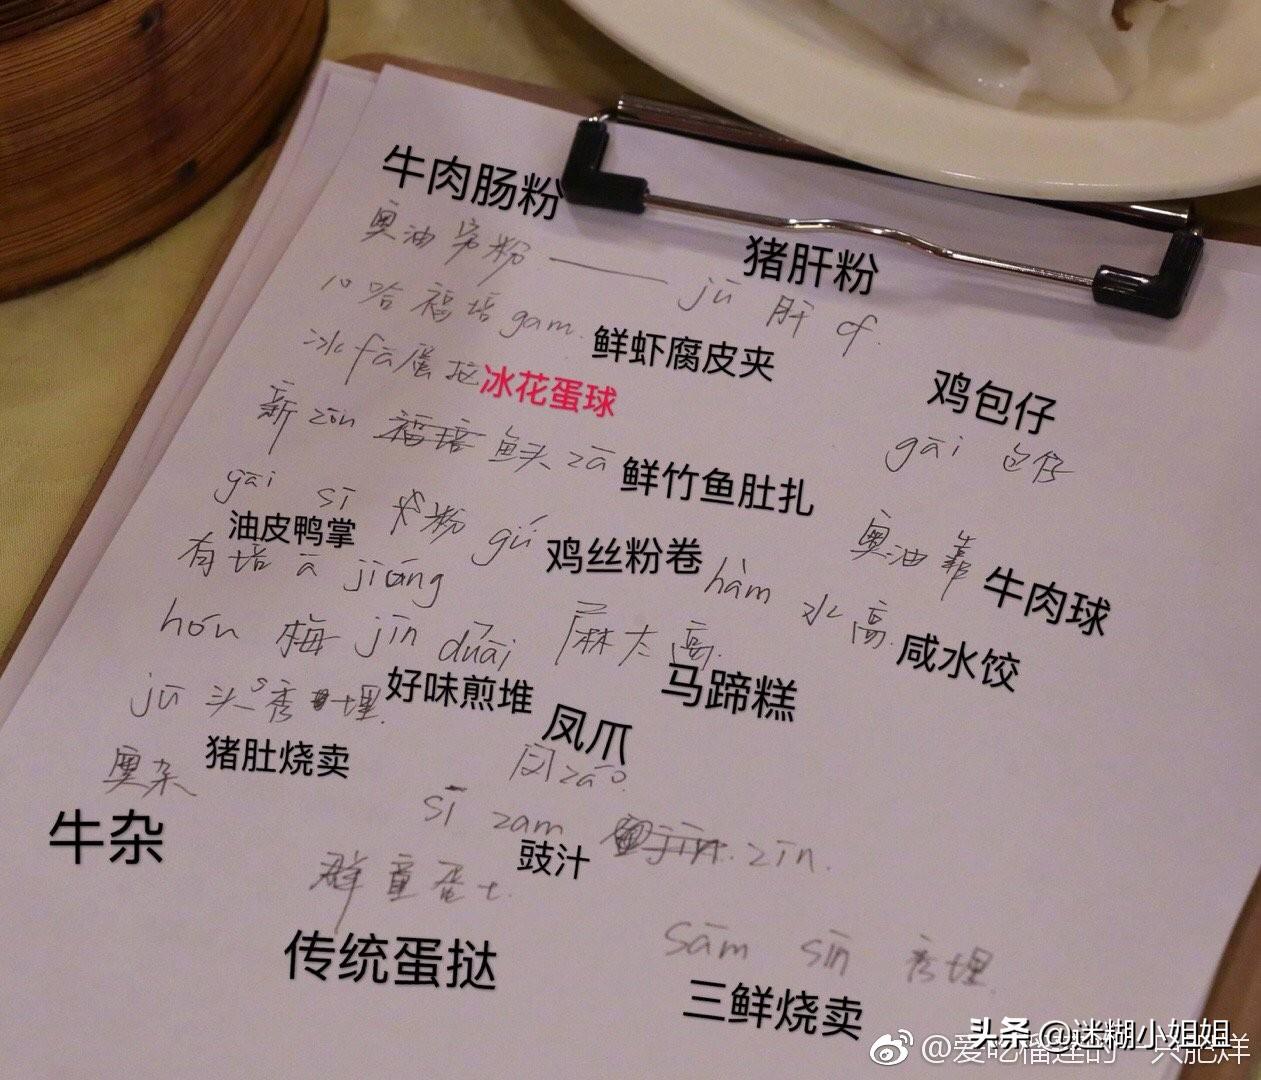 牛肉肠粉
奥油穷粉 —— jū 肝 cf.
猪肝粉
10哈福培gam.
鲜虾腐皮夹
冰fā蛋拉
冰花蛋球
鸡包仔
gāi 包仔
新zōn 鱼头zā
鲜竹鱼肚扎
gāi sī 粉 gú
鸡丝粉卷
奥油靠
牛肉球
油皮鸭掌
有培ā jiáng
hàm 水高.
咸水饺
hón 梅 jīn duāi
好味煎堆
麻太高.
马蹄糕
jū 头s秀埋.
猪肚烧卖
凤爪
凤zǎo.
奥杂
牛杂
sī zam zīn.
豉汁
群童蛋t.
传统蛋挞
sām sīn 秀埋.
三鲜烧卖
头条 @迷糊小姐姐
@爱吃榴莲的一只肥烊